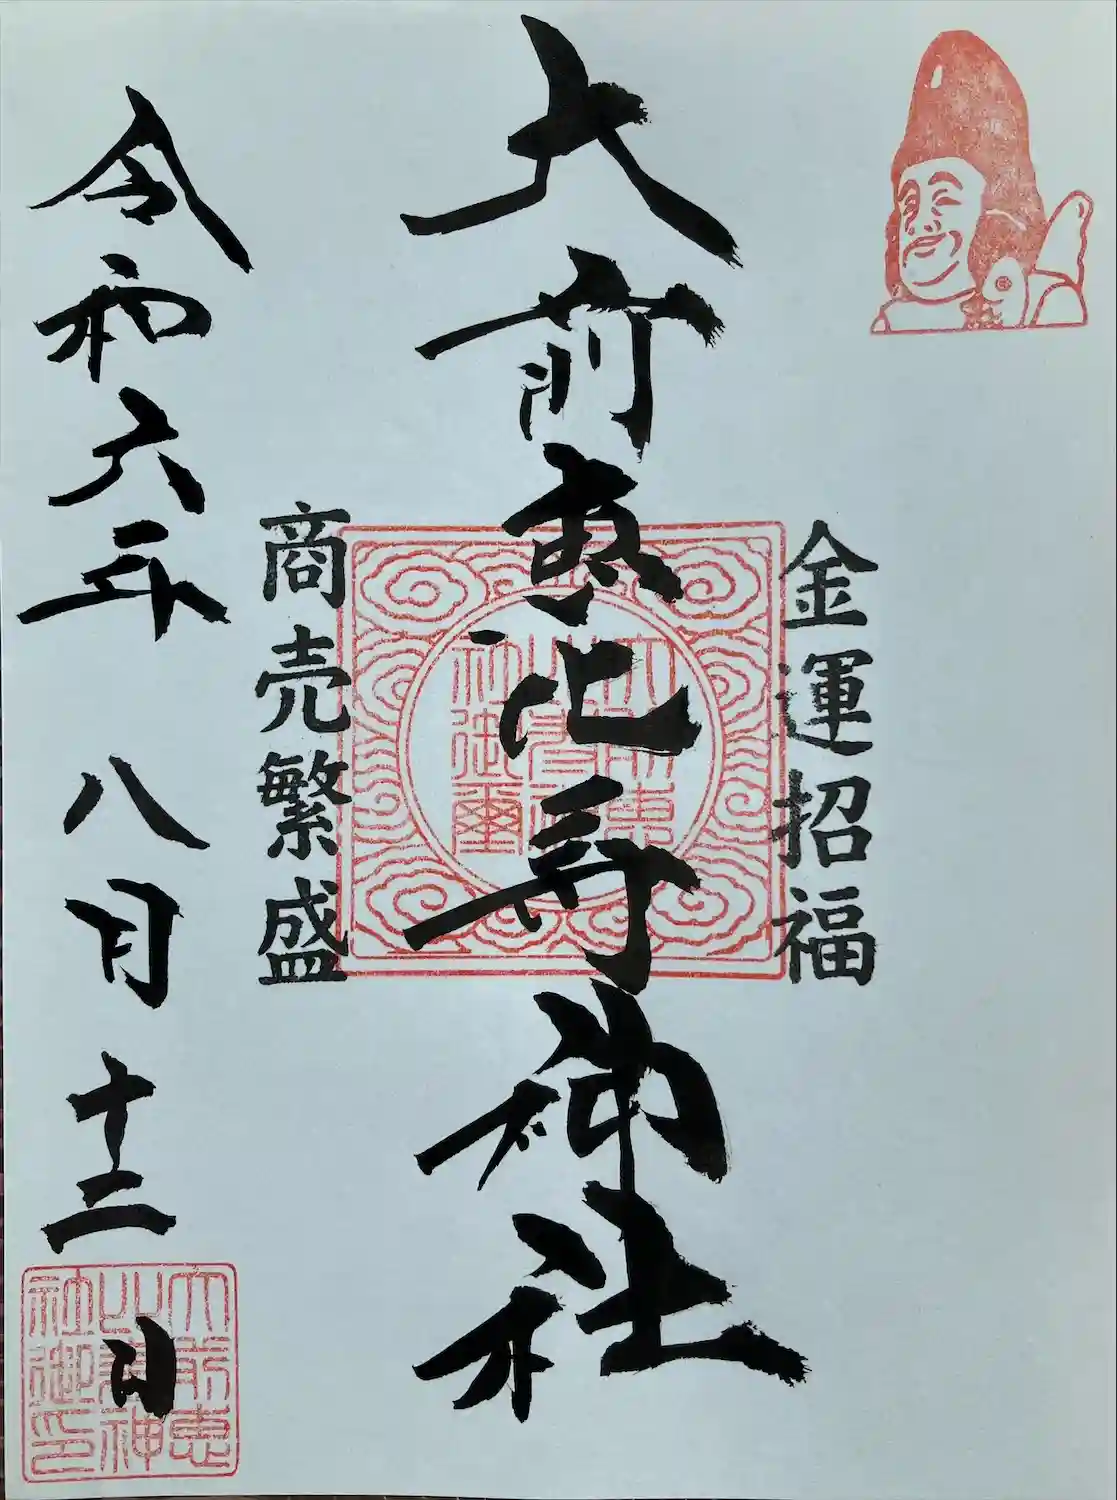 金運招福
大前恵比寿神社
大前恵
比寿神
社御璽
商売繁盛
令和六年 八月十二日
大前恵
比寿神
社御印